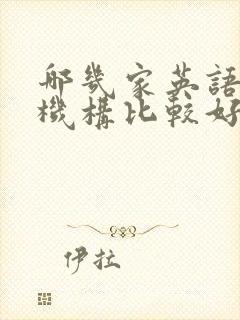 哪幾家英語
機構比較好
伊拉